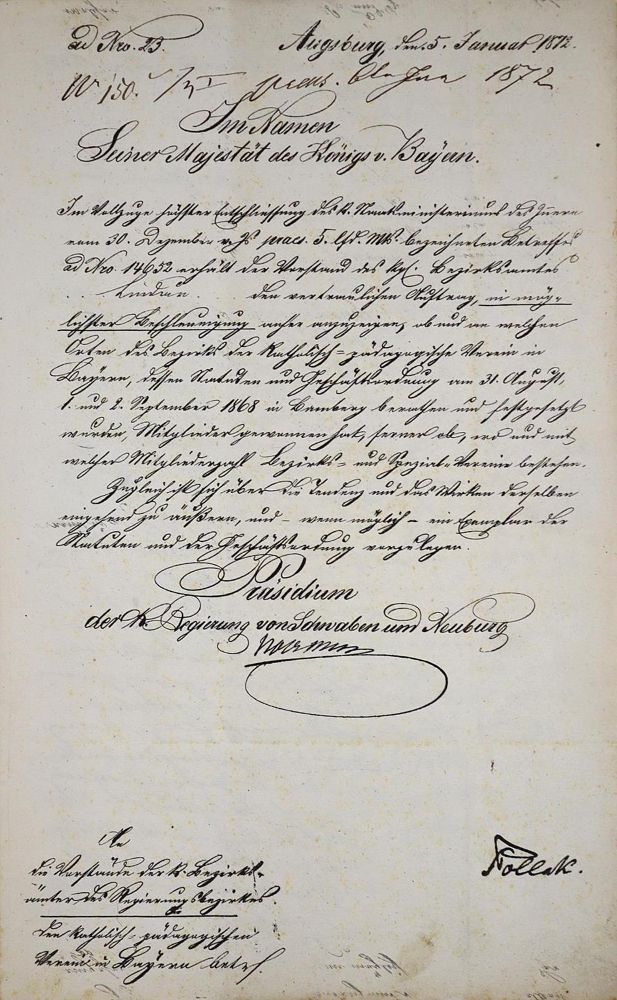 ad Nro. 23.
Augsburg, den 5. Januar 1872.
No 150. praes. 6te Jan 1872
Im Namen
Seiner Majestät des Königs v. Bayern.
Im Vollzuge höchster Entschliessung des k. Staatsministeriums des Innern
vom 30. Dezember v. Js praes. 5. lfd. Mts. bezeichneten Betreffs
ad Nro 14652 erhält der Vorstand des kgl. Bezirksamtes
Lindau. den vertraulichen Auftrag, in mög-
lichster Beschleunigung anher anzuzeigen, ob und an welchen
Orten des Bezirks der katholisch-pädagogische Verein in
Bayern, dessen Statuten und Geschäftsordnung am 31. August,
1. und 2. September 1868 in Bamberg berathen und festgesetzt
wurden, Mitglieder gewonnen hat, ferner ob, wo und mit
welcher Mitgliederzahl Bezirks- und Spezial-Vereine bestehen.
Zugleich ist sich über die Tendenz und das Wirken derselben
eingehend zu äußern, und - wenn möglich - ein Exemplar der
Statuten und der Geschäftsordnung vorzulegen.
Präsidium
der k. Regierung von Schwaben und Neuburg
An
die Vorstände der k. Bezirks-
ämter des Regierungsbezirkes.
Pollak.
Den katholisch-pädagogischen
Verein in Bayern betrf.